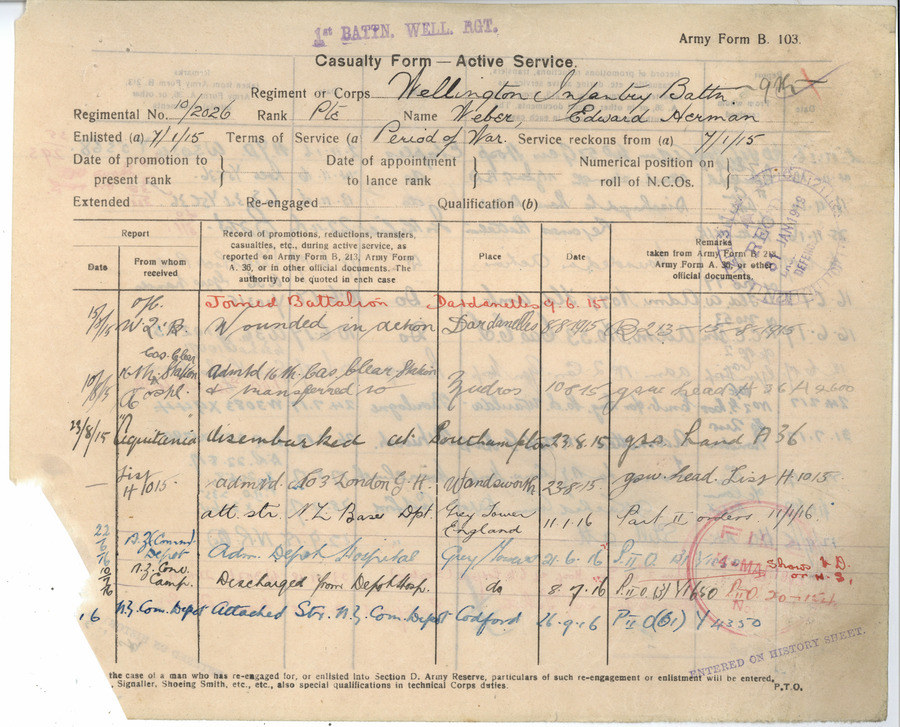 1st BATTN. WELL. RGT.
Army Form B. 103.
Casualty Form — Active Service.
Regiment or Corps Wellington Infantry Battn
Regimental No. 10/2026 Rank Pte Name Weber, Edward Herman
Enlisted (a) 7/1/15 Terms of Service (a Period of War. Service reckons from (a) 7/1/15
Date of promotion to present rank } Date of appointment to lance rank } Numerical position on roll of N.C.Os. }
Extended Re-engaged Qualification (b)
Report
Date
From whom received
Record of promotions, reductions, transfers, casualties, etc., during active service, as reported on Army Form B. 213, Army Form A. 36, or in other official documents. The authority to be quoted in each case
Place
Date
Remarks taken from Army Form B. 213, Army Form A. 36, or other official documents.
Joined Battalion Dardanelles 9.6.15
Wounded in action Dardanelles 8/8/15 B213 15-8-1915
10/8/15 16th Cas. Clear. Station admtd 16th Cas. Clear. Station & transferred to 10.8.15 gsw head A36 A2600
23/8/15 Aquitania disembarked at Southampton 23.8.15 gsw hand A36
— List H1015. admtd. No 3 London G.H. Wandsworth 23.8.15. gsw head List H1015
att. str. NZ Base Dpt. Grey Tower England 11.1.16 Part II orders 11/1/16
22/6/16 N.Z. Command Depot Adm. Depot Hospital Grey Towers 21.6.16 P.II.O.
10/7/16 N.Z. Conv. Camp. Discharged from Depot Hosp. do 8.7.16 P.II.O. (3) Y1650 P.II.O. 20-154
shows
16 N.Z. Com. Depot Attached Str. N.Z. Com. Depot Codford 26.9.16 P II O(31) Y4350
ENTERED ON HISTORY SHEET.
the case of a man who has re-engaged for, or enlisted into Section D. Army Reserve, particulars of such re-engagement or enlistment will be entered,
, Signaller, Shoeing Smith, etc., etc., also special qualifications in technical Corps duties.
P.T.O.